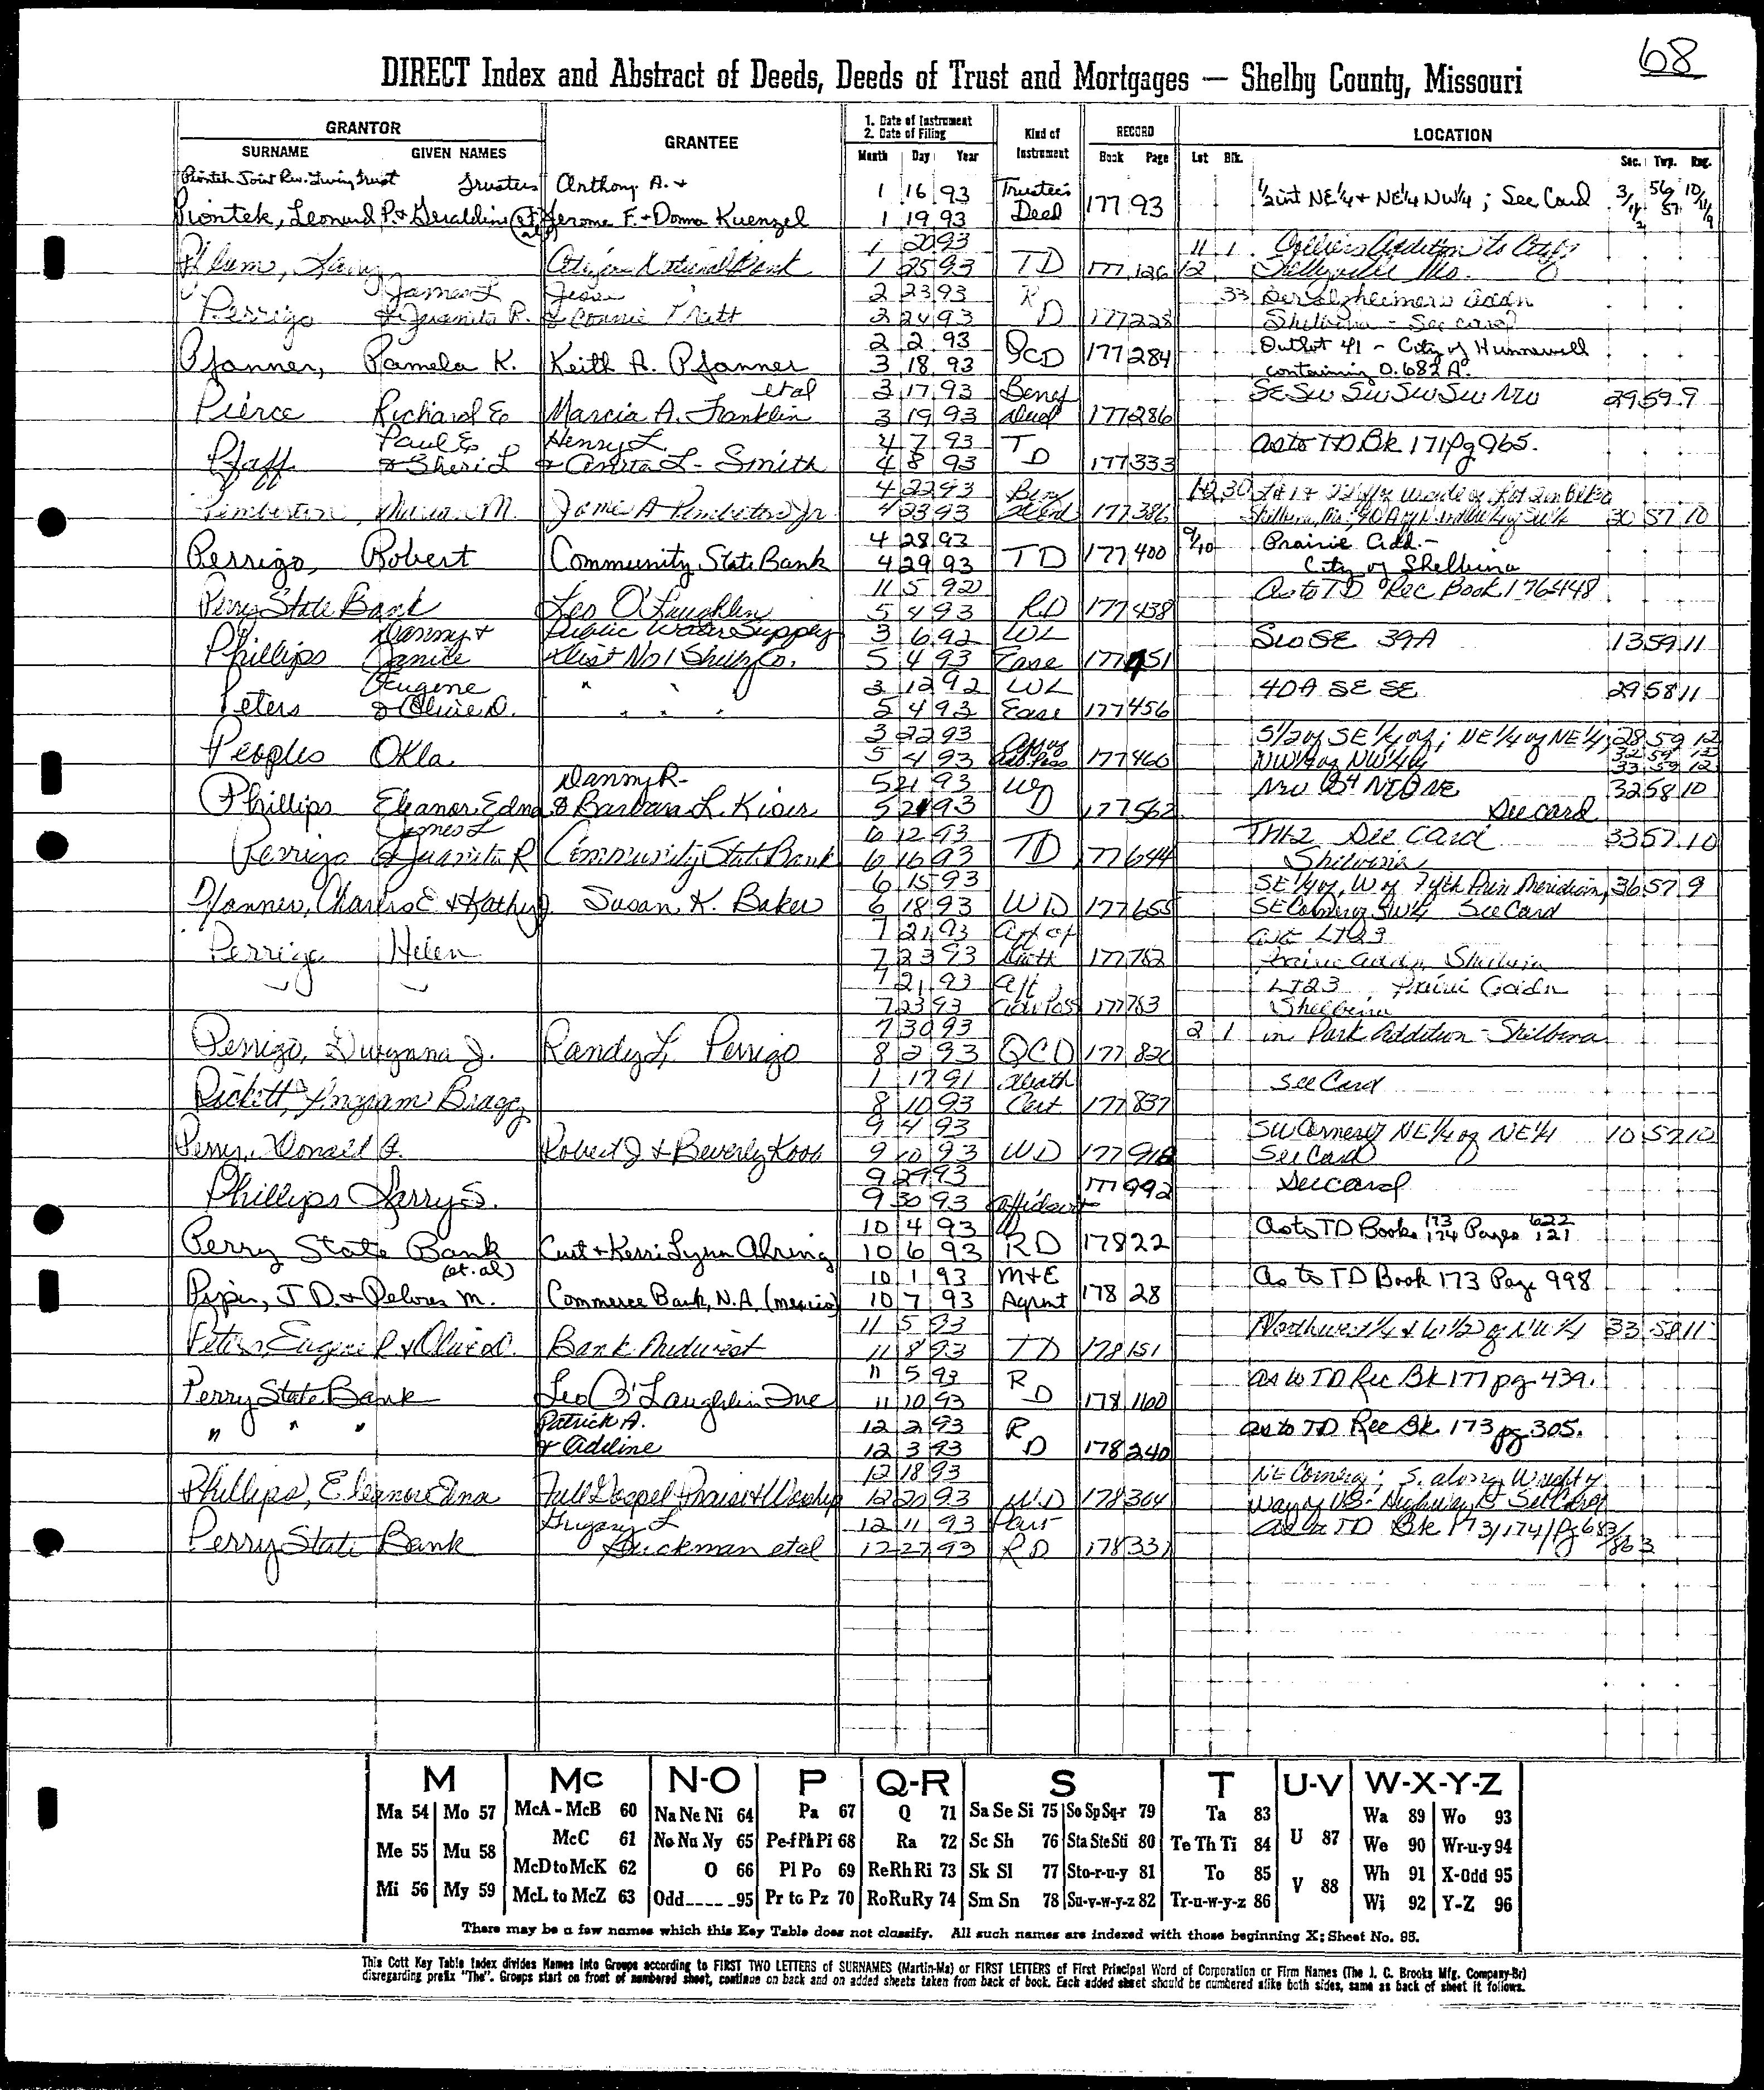 68
DIRECT Index and Abstract of Deeds, Deeds of Trust and Mortgages — Shelby County, Missouri
GRANTOR
SURNAME GIVEN NAMES
GRANTEE
1. Date of Instrument
2. Date of Filing
Month Day Year
Kind of Instrument
RECORD
Book Page
LOCATION
Lot Blk. Sec. Twp. Rng.
Piontek Joint Rev. Living Trust Trustees Anthony A. + 1 16 93 Trustee's
Piontek, Leonard P. + Geraldine (et al) Jerome F. + Donna Kuenzel 1 19 93 Deed 177 93 NE 1/4 + NE 1/4 NW 1/4 ; See Card
1 20 93 11 1 Addition to City
Citizens National Bank 1 25 93 TD 177 126 12 Shelbyville Mo.
James L Jesse 2 23 93 R 33
Perrigo & Juanita R. & Connie 2 24 93 D 177 228 Shelbina - See card
2 2 93 Outlot 41 - City of Hunnewell
Pfanner, Pamela K. Keith A. Pfanner 3 18 93 QCD 177 284 containing 0.682 A.
et al 3 17 93 Benef SE SW SW SW SW NW 29 59 9
Pierce Richard E Marcia A. Franklin 3 19 93 Deed 177 286
Paul E Henry L 4 7 93 T as to TD Bk 171 pg 965.
Pfaff & Sheri L & Anita L - Smith 4 8 93 D 177 333
4 22 93 Ben
Pemberton, M. A Pemberton Jr 4 23 93 Deed 177 386 Shelbina, Mo. 30 57 10
4 28 93 9/10 Prairie Add. -
Perrigo, Robert Community State Bank 4 29 93 TD 177 400 City of Shelbina
11 5 92 As to TD Rec Book 176-448
Perry State Bank Leo O'Laughlin 5 4 93 RD 177 438
Danny + Public Water Supply 3 6 92 WL SW SE 39A 13 59 11
Phillips Janice Dist No 1 Shelby Co. 5 4 93 Ease 177 451
Eugene " " 3 12 92 WL 40A SE SE 29 58 11
Peters & Olive D. " " " 5 4 93 Ease 177 456
3 22 93 S 1/2 of SE 1/4 of ; NE 1/4 of NE 1/4 28 59 12
Peoples Okla 5 4 93 177 460 NW 1/4 of NW 1/4 33 59 12
Danny R 5 21 93 W 32 58 10
Phillips Eleanor Edna & Barbara L. Kiser 5 21 93 D 177 562 See card
James L 6 12 93 See Card 33 57 10
Perrigo & Juanita R Community State Bank 6 16 93 TD 177 644 Shelbina
6 15 93 SE 1/4 of, W of Prin Meridian, 36 57 9
Pfanner, Charles E + Kathy J. Susan K. Baker 6 18 93 WD 177 655 SE Corner of SW 1/4 See Card
7 21 93 Aff of LT 23
Perrigo Helen 7 23 93 Death 177 782 Prairie Addn Shelbina
7 21 93 Aff LT 23 Prairie Addn
7 23 93 177 783 Shelbina
7 30 93 2 1 in Park Addition - Shelbina
Perrigo, J. Randy L. Perrigo 8 2 93 QCD 177 820
1 17 91 Death See Card
Pickett, Ingram Bragg 8 10 93 Cert 177 837
9 4 93 SW Corner of NE 1/4 of NE 1/4 10 57 10
Perry, Robert J + Beverly Koos 9 10 93 WD 177 918 See Card
9 29 93 See card
Phillips Larry S. 9 30 93 Affidavit 177 992
10 4 93 As to TD Books 173 174 Pages 622 121
Perry State Bank Curt + Kerri Lynn Ahring 10 6 93 RD 178 22
(et. al) 10 1 93 M+E As to TD Book 173 Page 998
Piper, J D. + Delores M. Commerce Bank, N.A. (Mexico) 10 7 93 Agrmt 178 28
11 5 93 Northwest 1/4 + W 1/2 of NE 1/4 33 58 11
Peters, Eugene P + Olive D. Bank Midwest 11 8 93 TD 178 151
11 5 93 R as to TD Rec Bk 177 pg 439.
Perry State Bank Leo O'Laughlin Inc 11 10 93 D 178 160
" " " Patrick A. 12 2 93 R as to TD Rec Bk. 173 pg 305.
& Adeline 12 3 93 D 178 240
12 18 93 NE Corner ; S. along
Phillips, Eleanor Edna Full Gospel Praise + Worship 12 20 93 WD 178 304 way of US Highway
Gregory L 12 11 93 Part as to TD Bk 173/174/Pg 683/863
Perry State Bank Buckman et al 12 27 93 RD 178 331
M Mc N-O P Q-R S T U-V W-X-Y-Z
Ma 54 Mo 57 McA - McB 60 Na Ne Ni 64 Pa 67 Q 71 Sa Se Si 75 So Sp Sq-r 79 Ta 83 Wa 89 Wo 93
Me 55 Mu 58 McC 61 No Nu Ny 65 Pe-f Ph Pi 68 Ra 72 Sc Sh 76 Sta Ste Sti 80 Te Th Ti 84 U 87 We 90 Wr-u-y 94
McD to McK 62 O 66 Pl Po 69 Re Rh Ri 73 Sk Sl 77 Sto-r-u-y 81 To 85 V 88 Wh 91 X-Odd 95
Mi 56 My 59 McL to McZ 63 Odd____95 Pr to Pz 70 Ro Ru Ry 74 Sm Sn 78 Su-v-w-y-z 82 Tr-u-w-y-z 86 Wi 92 Y-Z 96
There may be a few names which this Key Table does not classify. All such names are indexed with those beginning X; Sheet No. 95.
This Cott Key Table Index divides Names into Groups according to FIRST TWO LETTERS of SURNAMES (Martin-Ma) or FIRST LETTERS of First Principal Word of Corporation or Firm Names (The J. C. Brooks Mfg. Company-Br)
disregarding prefix "The". Groups start on front of numbered sheet, continue on back and on added sheets taken from back of book. Each added sheet should be numbered alike both sides, same as back of sheet it follows.